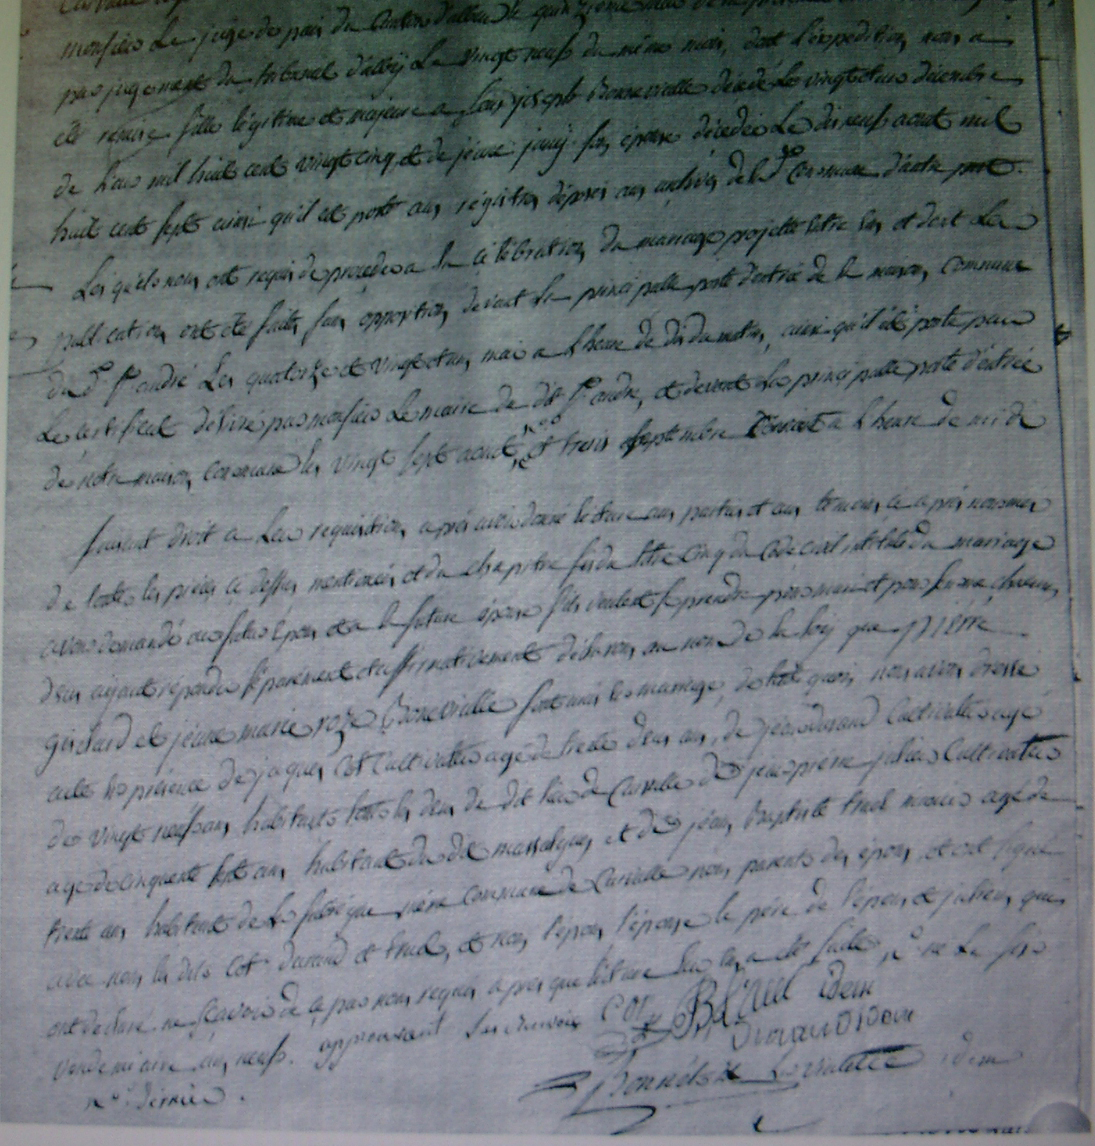 monsieur Le juge de paix du Canton d'alban Le quinzieme mai
par jugement du tribunal d'alby Le vingt neuf du même mois, dont l'expedition nous a
ete remise fille legitime et majeure a Louis joseph Bonneviale décédé Le vingt deux décembre
de L'an mil huit cent vingt cinq et de jeane jany son épouse décédée Le dix neuf aout mil
huit cent sept ainsi qu'il est porté aux régistres déposés aux archives de la de Commune d'autre part.
Les quels nous ont requis de proceder a la célébration du mariage projetté entre eux et dont Les
publications ont été faites sans opposition devant La principalle porte d'entrée de la maison Commune
du dt st andré Les quatorze et vingt et un mai a l'heure de dix du matin, ainsi qu'il est porté par
Le certificat délivré par monsieur Le maire de dit st andre, et devant La principalle porte d'entrée
de notre maison Commune les vingt sept aout et trois septembre a l'heure de midi
faisant droit a Leur requisition, après avoir donné lecture aux parties et aux temoins ci après nommés
de toutes les pièces ci dessus mentionnées et du chapitre six du titre Cinq du Code civil intitulé du mariage
avons demandé au futur époux et a la future épouse s'ils veulent se prendre pour mari et pour femme, chacun
deux ayant répondu séparement et affirmativement déclarons au nom de la loy que pierre
girdard et jeane marie roze Boneviale sont unis en mariage, de tout quoi nous avons dressé
acte en présence de jaques Cot Cultivateur agé de trente deux ans, de jean durand Cultivateur agé
de vingt neuf ans, habitants tous les deux de dit lieu de Curvalle de jean pierre julien Cultivateur
age de cinquante sept ans habitant du dit massalgues et de jean Baptiste truel agé de
trente ans habitant de La fabrègue même Commune de Curvalle non parents des époux, et ont signé
avec nous les dits Cot durand et truel, et non l'époux l'épouse le père de l'époux et julien qui
ont déclaré ne sçavoir de ce par nous requis après que lecture leur en a été faite,
vendemiaire an neuf. approuvant
Cot BTruel idem
Durand idem
Lavialette idem